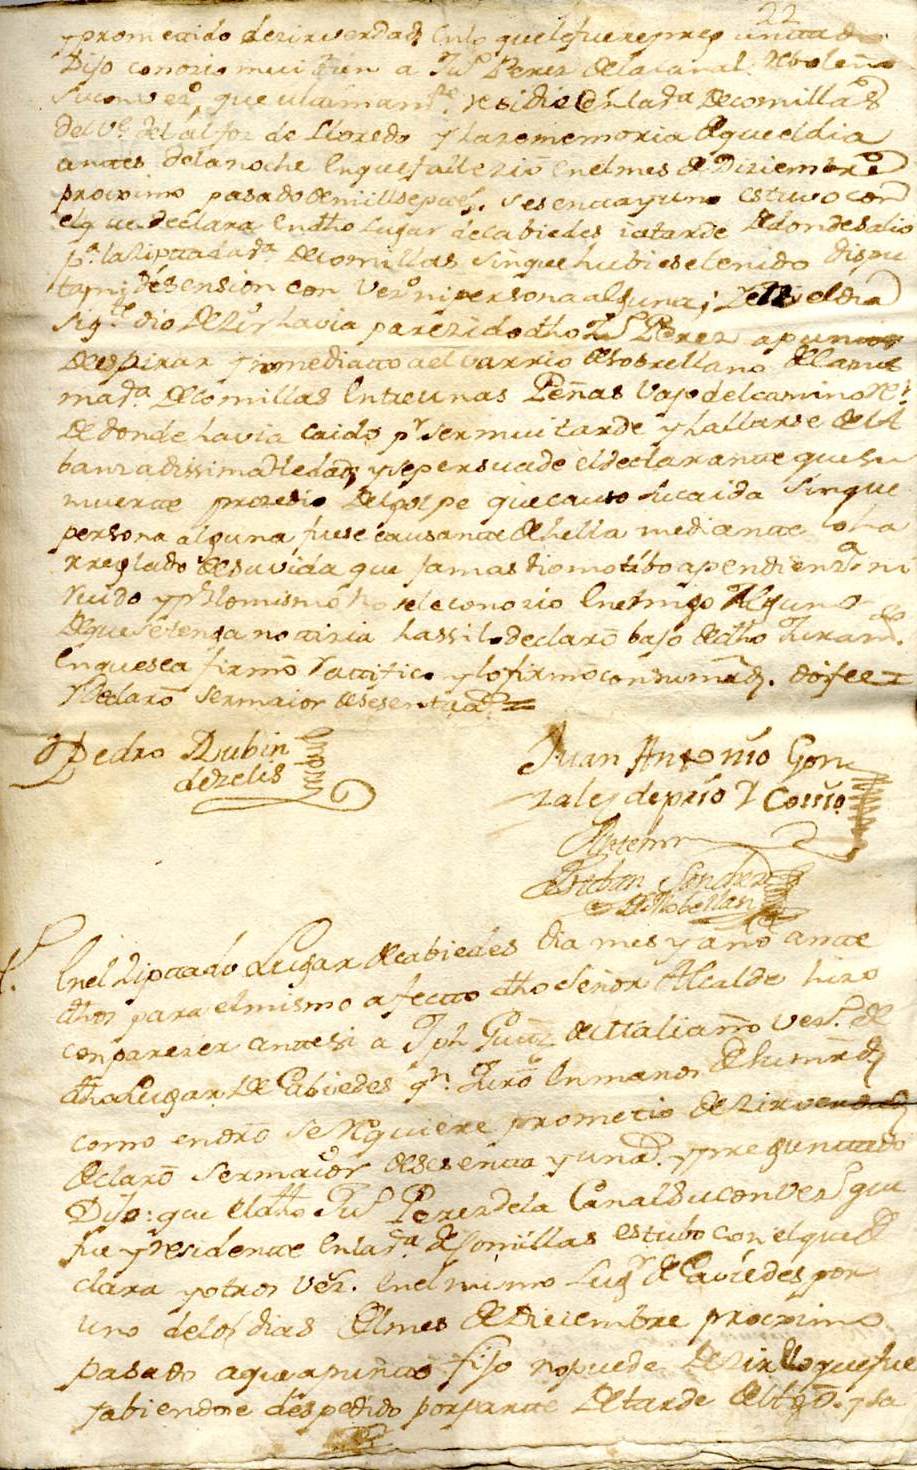 22
y prometido dezir verdad en lo que le fuere preguntado
Dijo conozio mui bien a Jn Perez de la Canal
su convezº, que ultimamte residio en la dha de Comillas
del Vº del alfoz de Lloredo y haze memoria de que el dia
antes de la noche en que fallezio en el mes de Diziembre
proximo pasado de mill septes. sesenta y uno estuvo con
el que declara en dho Lugar de Cabiedes i a tarde de donde salio
pa la zittada Va de Comillas sin que hubiese tenido dispu
ta ni desension con vezº ni persona alguna; y el dia
sigte oio dezir havia parezido dho Jn Perez a punto
de espirar inmediatto a el varrio de Sobrellano de la nomi
mada de Comillas entre unas Peñas vajo del camino Rl
de donde havia caido pr ser mui tarde y hallarse de A
banzadissima hedad, y se persuade el declarante que su
muerte prozedio del golpe que causo su caida sin que
persona alguna fuese causante de hella mediante lo ha
rreglado de su vida que jamas dio motibo a pendienza ni
ruido y pr lo mismo no se le conozio enemigo alguno
de que se tenga notizia hassi lo declaró bajo de dho Juramto
en que se a firmó ratifico y lo firmó con su mrd. doi fee
y declaró ser maior de sesenta as =
Pedro Rubin
de zelis
Juan Antonio Gon
zales de prio Y Cossio
Antemi
Esteban Sanchez
de Mobellan
En el zitado Lugar de Cabiedes dia mes y año antte
dhos para el mismo efectto dho Señor Alcalde hizo
conparezer ante si a Jph Gutz de Vezº de
dho Lugar de Cabiedes qn Juró en manos de su mrd
como en dro se Rquiere prometio dezir verdad
declaró ser maior de sesenta y un as. y preguntado
Dijo: que el dho Jn Perez de la Canal su convezº que
fue y residente en la dha Va de Comillas estubo con el que de
clara y otros vezs. en el mismo Lugr de Caviedes por
uno de los dias del mes de Diciembre proximo
pasado a que a punto fijo no puede dezir lo que fue
habiendose despedido por parte de tarde del tgo. y sa